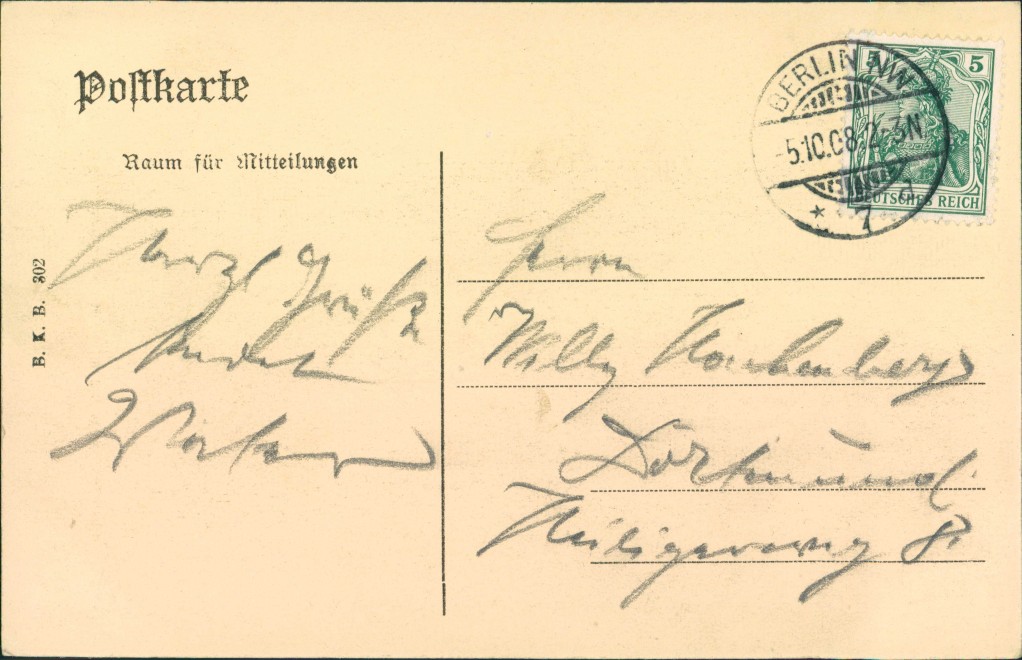 Postkarte
Raum für Mitteilungen
B. K. B. 302
BERLIN NW
5.10.08.2-3N
* 7 d
5 5
DEUTSCHES REICH
Herzl Grüße
sendet
Herrn
Willy
Dortmund
Heiligerweg 8.